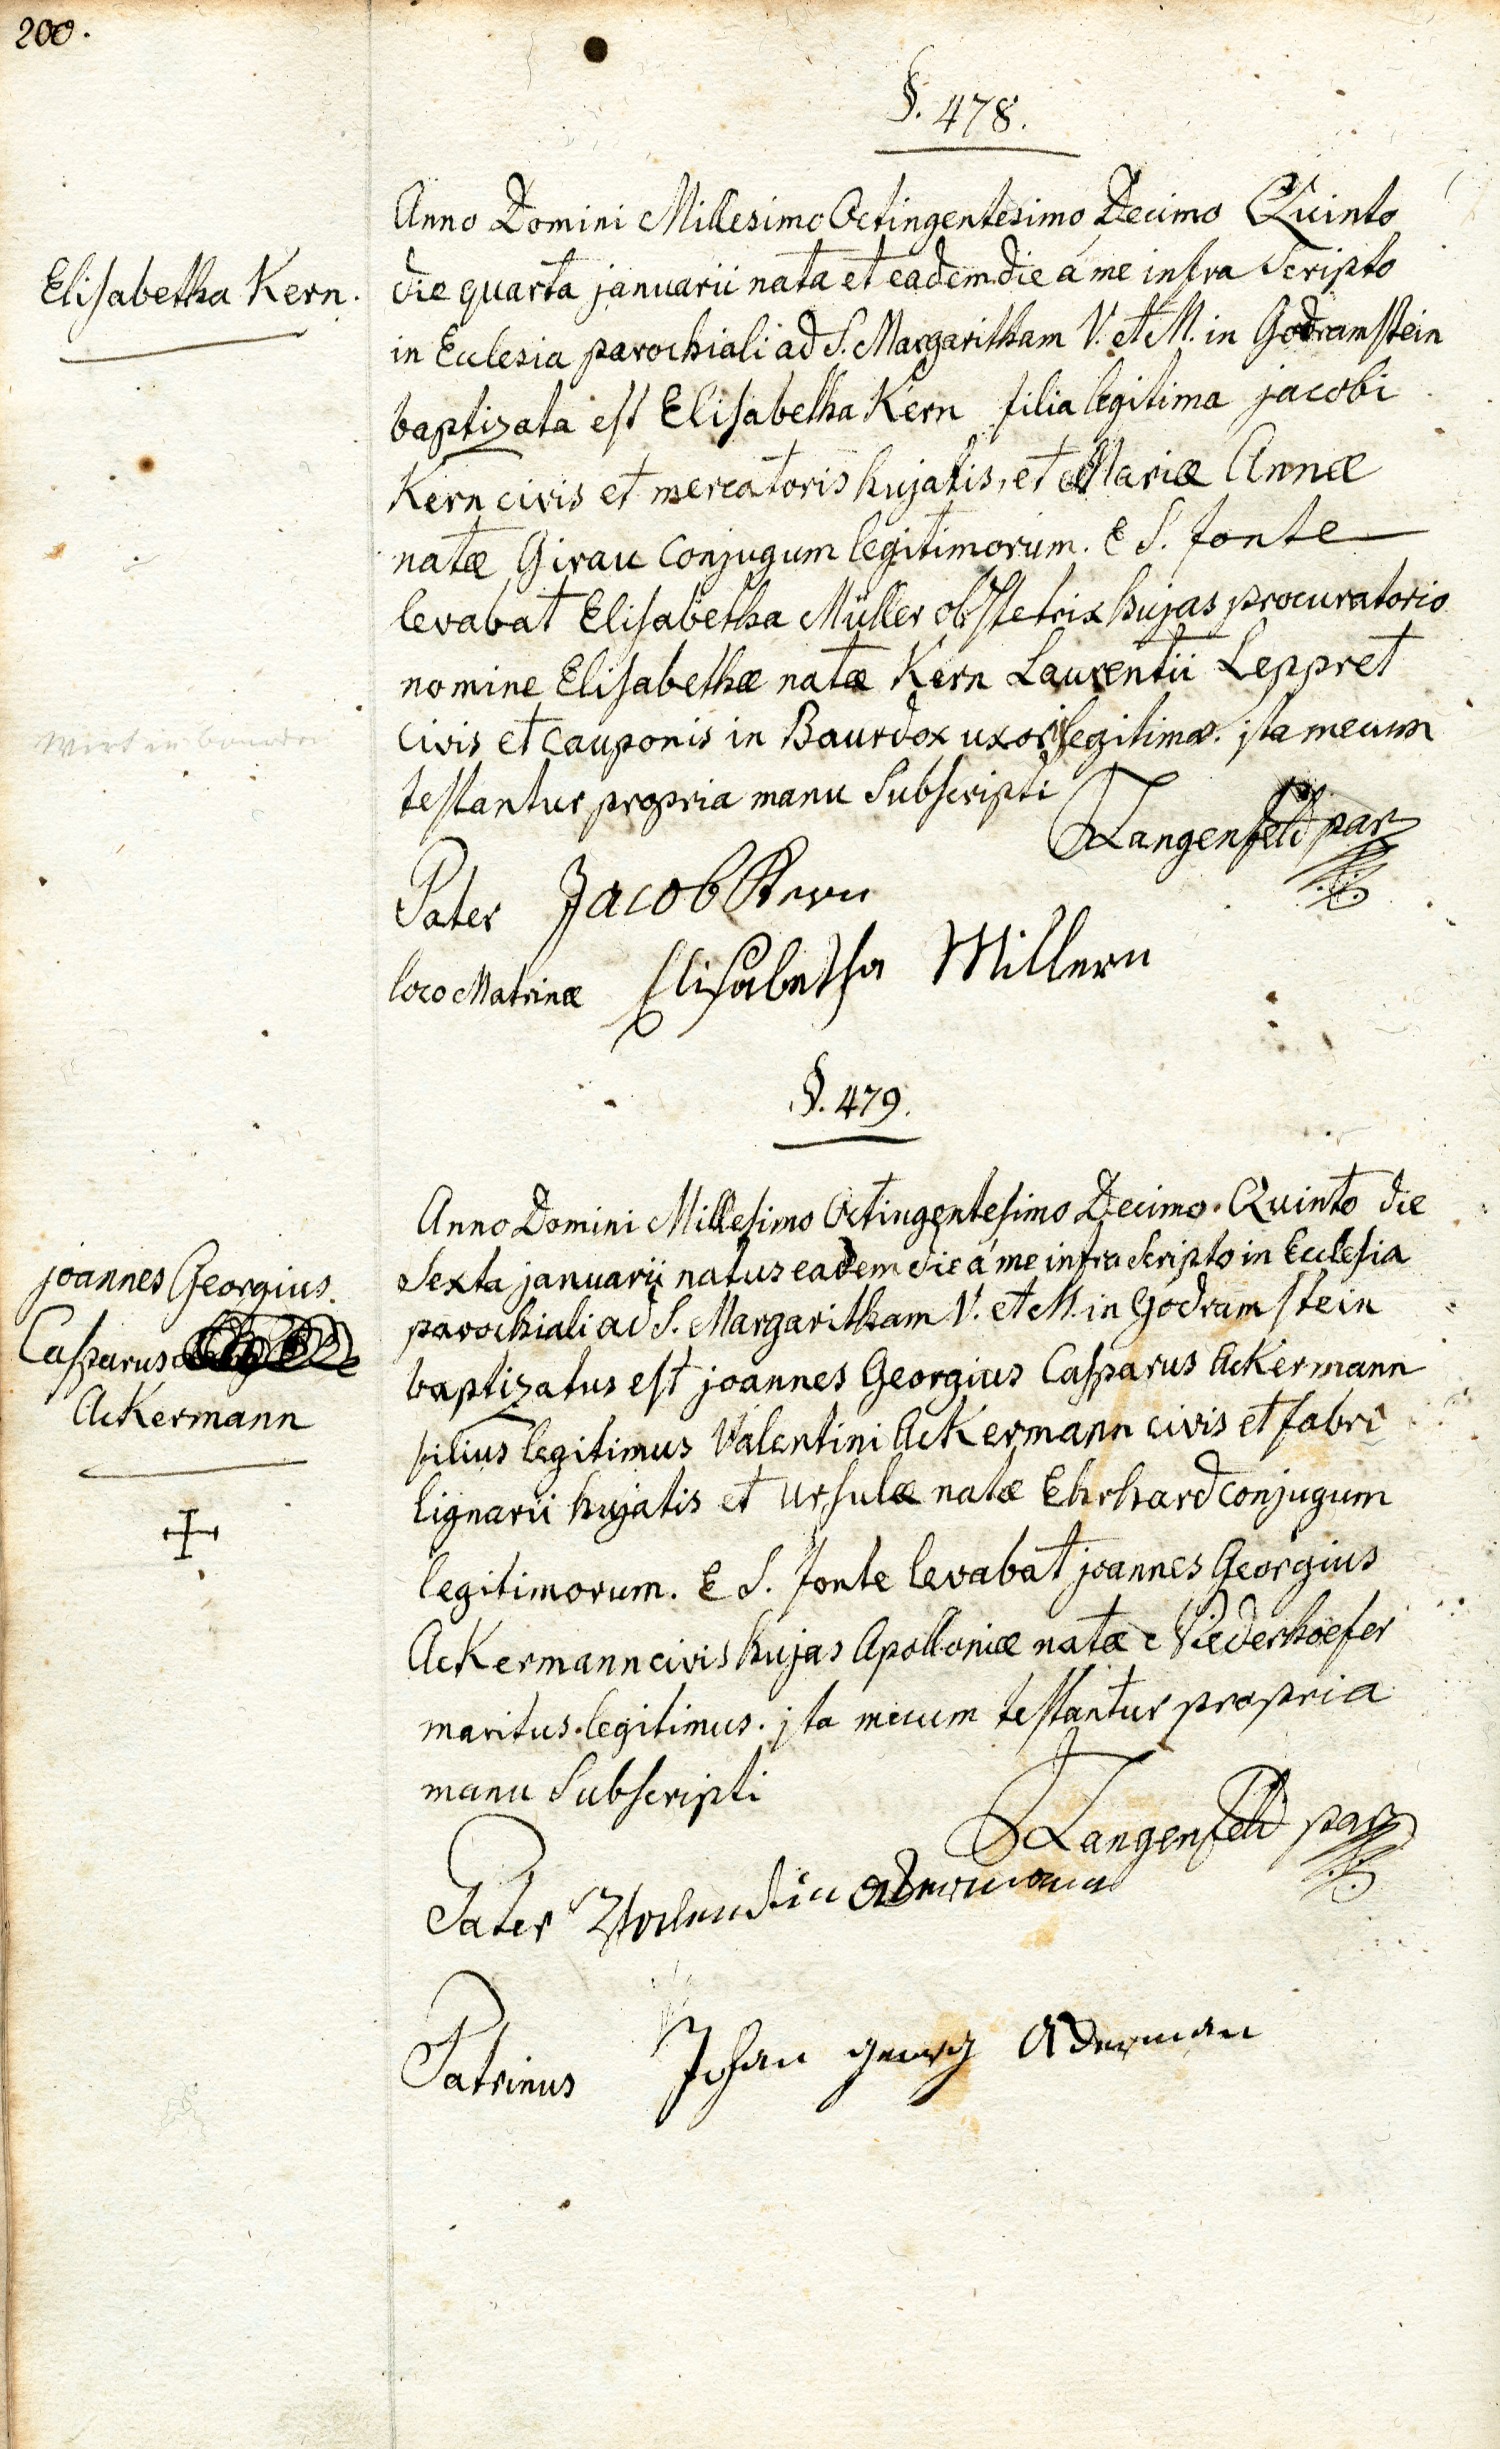 200.
§. 478.
Elisabetha Kern.
Anno Domini Millesimo Octingentesimo Decimo Quinto
die quarta januarii nata et eadem die á me infra Scripto
in Eclesia parochiali ad S. Margaritham V. et M. in Godramstein
baptizata est Elisabetha Kern filia legitima jacobi
Kern civis et mercatoris hujatis, et Mariæ Annæ
natæ Girau conjugum legitimorum. E S. fonte
levabat Elisabetha Müller obstetrix hujas procuratorio
nomine Elisabethæ natæ Kern Laurentii Leppret
civis et cauponis in Baurdox uxoris legitimæ. jta mecum
testantur propria manu Subscripti
Wirt in
Langenfeld par
Pater Jacob Kern
loco Matrinæ Elisabetha Millern
§. 479.
joannes Georgius.
Casparus
Ackermann
Anno Domini Millesimo Octingentesimo Decimo. Quinto die
Sexta januarii natus eadem die á me infra Scripto in Ecclesia
parochiali ad S. Margaritham V. et M. in Godramstein
baptizatus est joannes Georgius Casparus Ackermann
filius legitimus Valentini Ackermann civis et fabri
lignarii hujatis et Ursulæ natæ Ehrhard conjugum
legitimorum. E S. fonte levabat joannes Georgius
Ackermann civis hujas Apolloniæ natæ Niederhoefer
maritus. legitimus. jta mecum testantur propria
manu Subscripti
Langenfeld par
Pater Valendin Ackermann
Patrinus Johan georg Ackerman